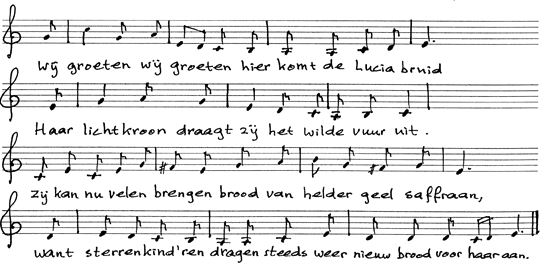 Wij groeten wij groeten hier komt de Lucia bruid
Haar lichtkroon draagt zij het wilde vuur uit.
zij kan nu velen brengen brood van helder geel saffraan,
want sterrenkind'ren dragen steeds weer nieuw brood voor haar aan.